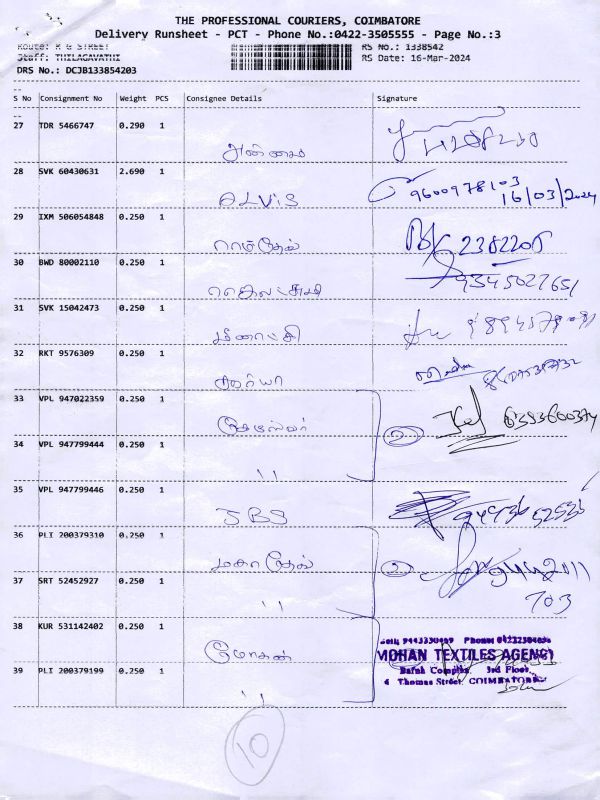 THE PROFESSIONAL COURIERS, COIMBATORE
Delivery Runsheet - PCT - Phone No.:0422-3505555 - Page No.:3
Route: R G STREET RS No.: 1338542
Staff: THILAGAVATHI RS Date: 16-Mar-2024
DRS No.: DCJB133854203
S No Consignment No Weight PCS Consignee Details Signature
27 TDR 5466747 0.290 1
அன்னை
28 SVK 60430631 2.690 1
ALVIS 9600978103
16/03/2024
29 IXM 506054848 0.250 1
ராம்தேவ் 2382208
30 BWD 80002110 0.250 1
9345027651
31 SVK 15042473 0.250 1
மீனாட்சி
32 RKT 9576309 0.250 1
சூர்யா
33 VPL 947022359 0.250 1
2 6383600374
34 VPL 947799444 0.250 1
''
35 VPL 947799446 0.250 1
JBS
36 PLI 200379310 0.250 1
மகாதேவ் 2
37 SRT 52452927 0.250 1
'' 703
38 KUR 531142402 0.250 1
மோகன்
MOHAN TEXTILES AGENCY
39 PLI 200379199 0.250 1
3rd Floor,
'' Thomas Street, COIMBATORE
10